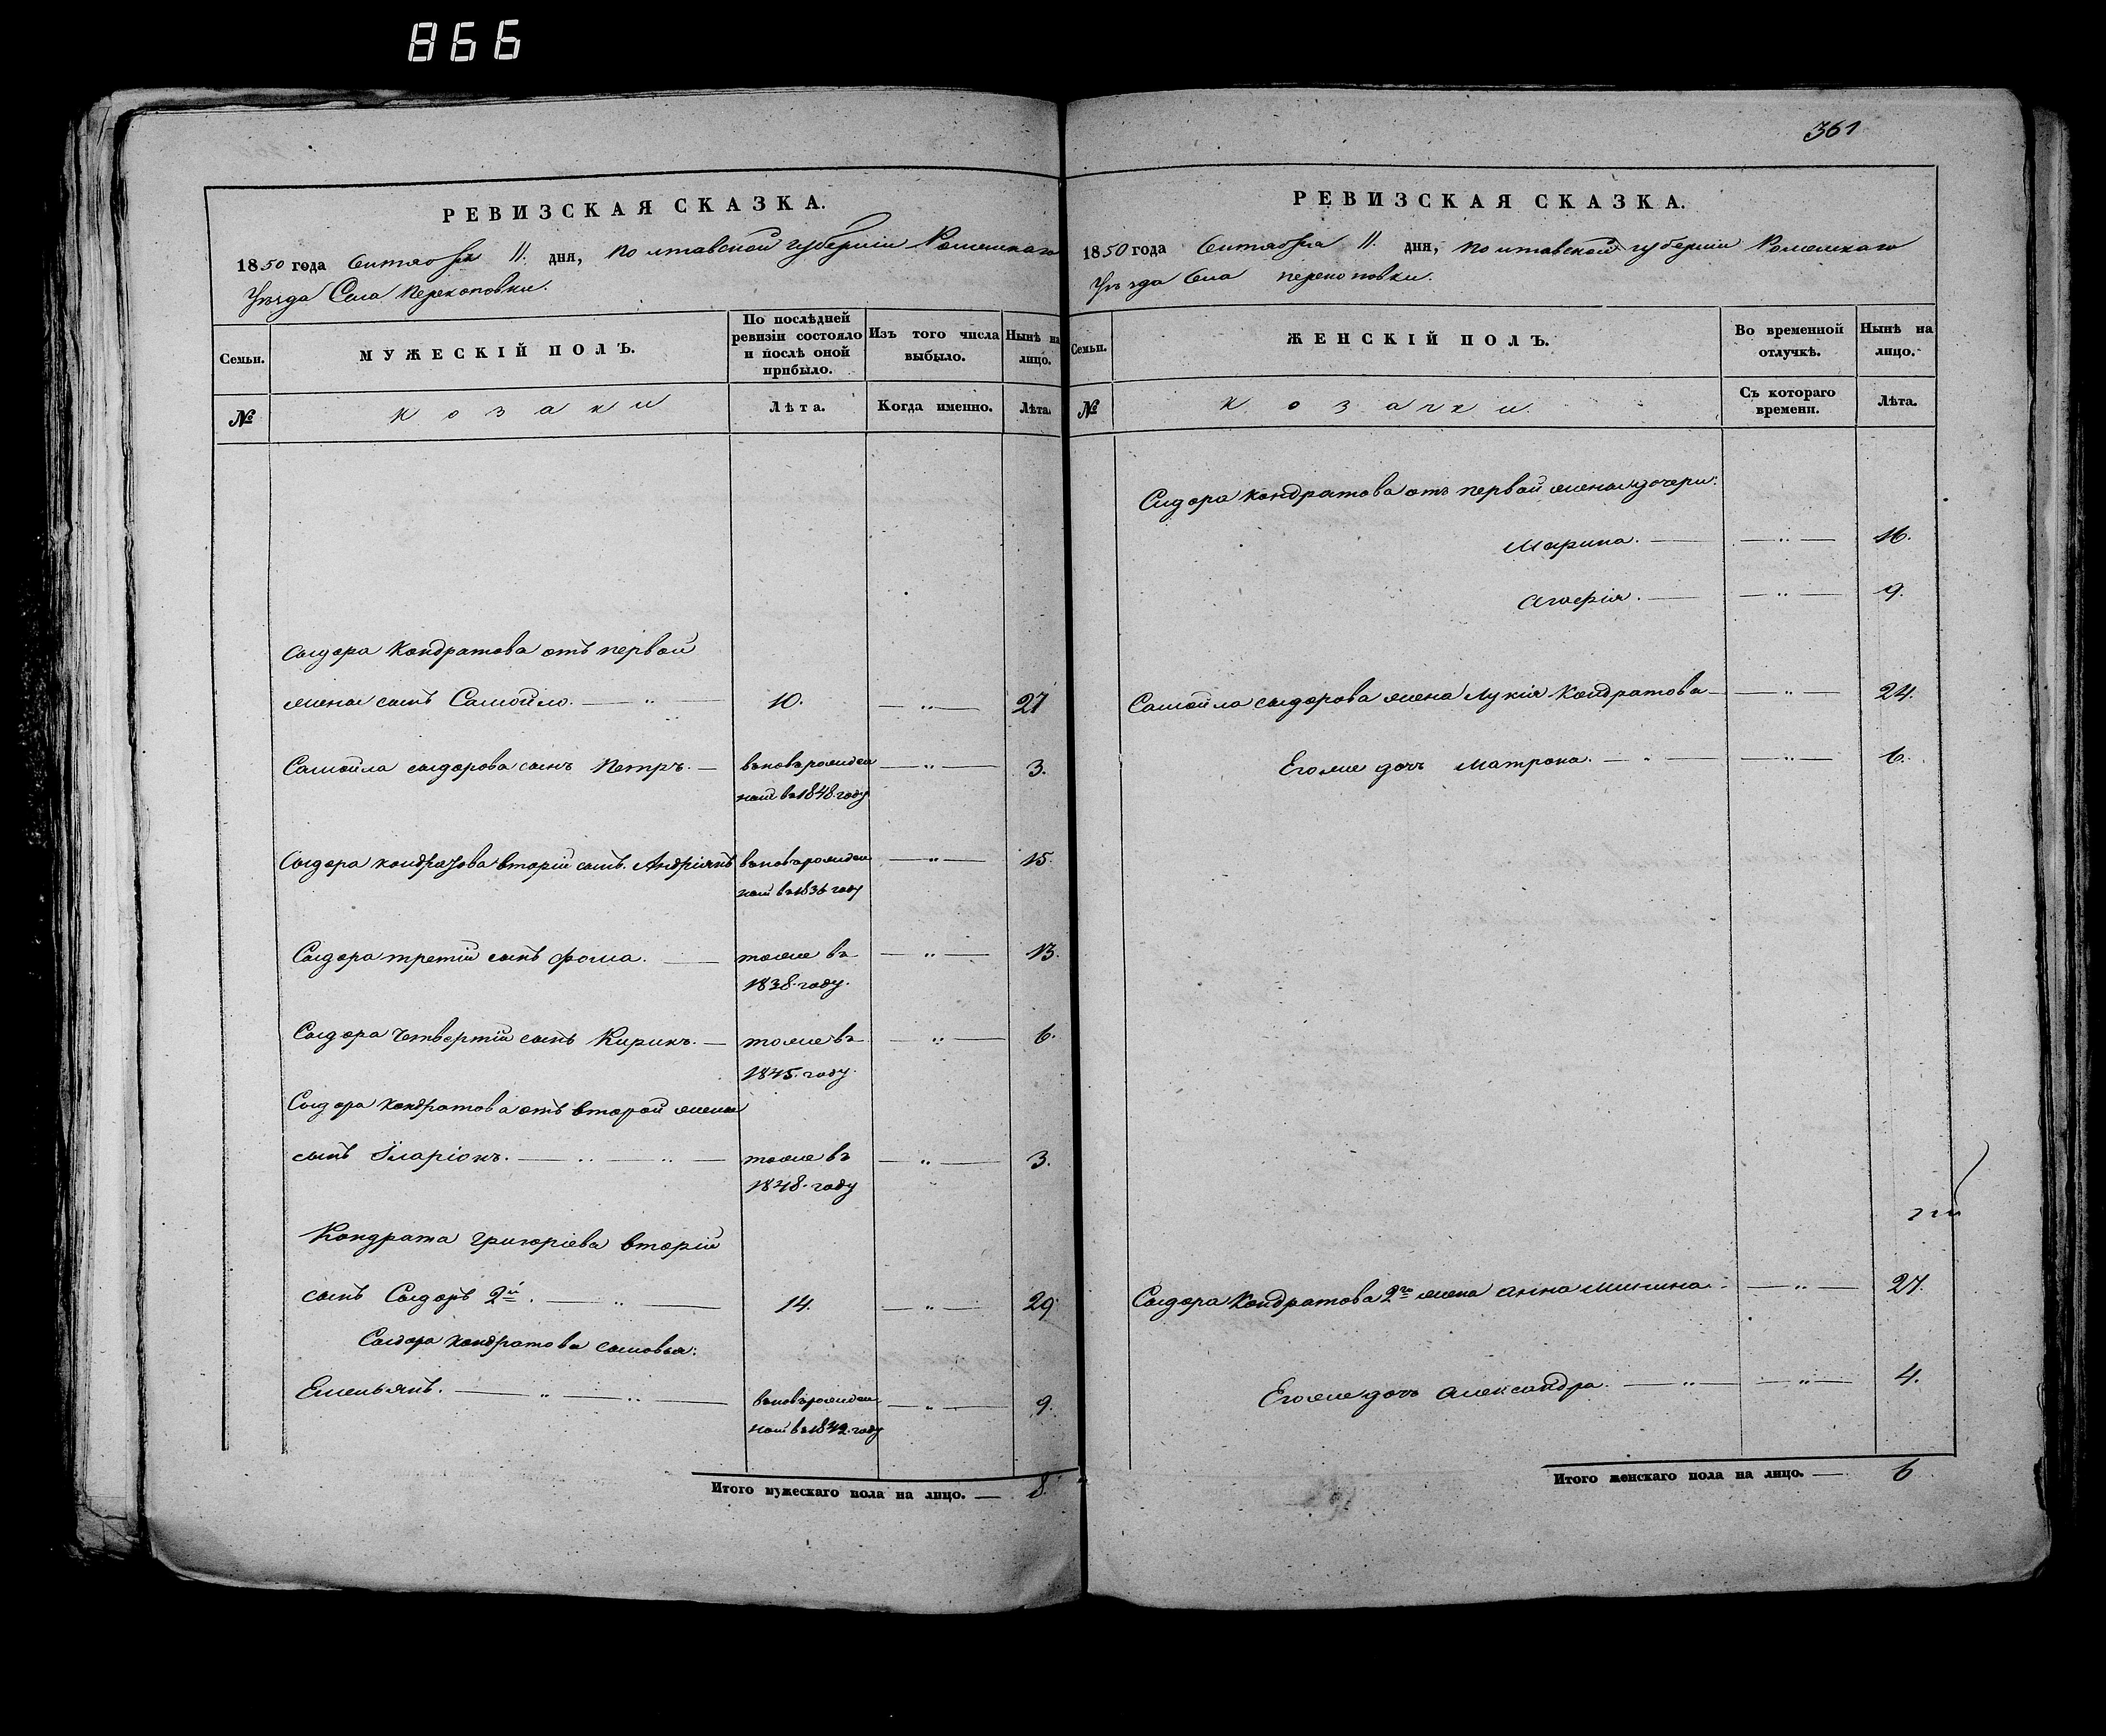 866
РЕВИЗСКАЯ СКАЗКА.
1850 года Сентября 11. дня, Полтавской губерніи Роменскаго
Уѣзда Села Перекоповки.
Семьи.
МУЖЕСКІЙ ПОЛЪ.
По послѣдней ревизіи состояло и послѣ оной прибыло.
Изъ того числа выбыло.
Нынѣ на лицо.
№
Козаки
Лѣта.
Когда именно.
Лѣта.
Сыдора Кондратова отъ первой
жены сынъ Самойло. — 10. — 27
Самойла сыдорова сынъ Петръ. — вновь рожден — 3.
ной въ 1848. году
Сыдора кондратова вторій сынъ. Андріянъ вновь рожден — 15.
ной въ 1836 году
Сыдора третій сынъ Фома. — тоже въ — 13.
1838. году.
Сыдора четвертій сынъ Кирикъ. — тоже въ — 6.
1845. году.
Сыдора Кондратова отъ второй жены
сынъ Іларіонъ. — тоже въ — 3.
1848. году
Кондрата григоріева вторій
сынъ Сыдоръ 2й. — 14. — 29
Сыдора кондратова сыновья:
Емельянъ. — вновь рожден — 9.
ной въ 1842. году
Итого мужескаго пола на лицо. — 8.
361
РЕВИЗСКАЯ СКАЗКА.
1850 года Сентября 11. дня, Полтавской губерніи Роменскаго
Уѣзда Села перекоповки.
Семьи.
ЖЕНСКІЙ ПОЛЪ.
Во временной отлучкѣ.
Нынѣ на лицо.
№
Козачки.
Съ котораго времени.
Лѣта.
Сидора Кондратова отъ первой жены дочери:
Марина. — 16.
Агафія. — 9.
Самойла сыдорова жена Лукія Кондратова — 24.
Егоже дочь Матрона. — 6.
Сыдора Кондратова 2го жена Анна Минина. — 27.
Егоже дочь Александра. — 4.
Итого женскаго пола на лицо. — 6